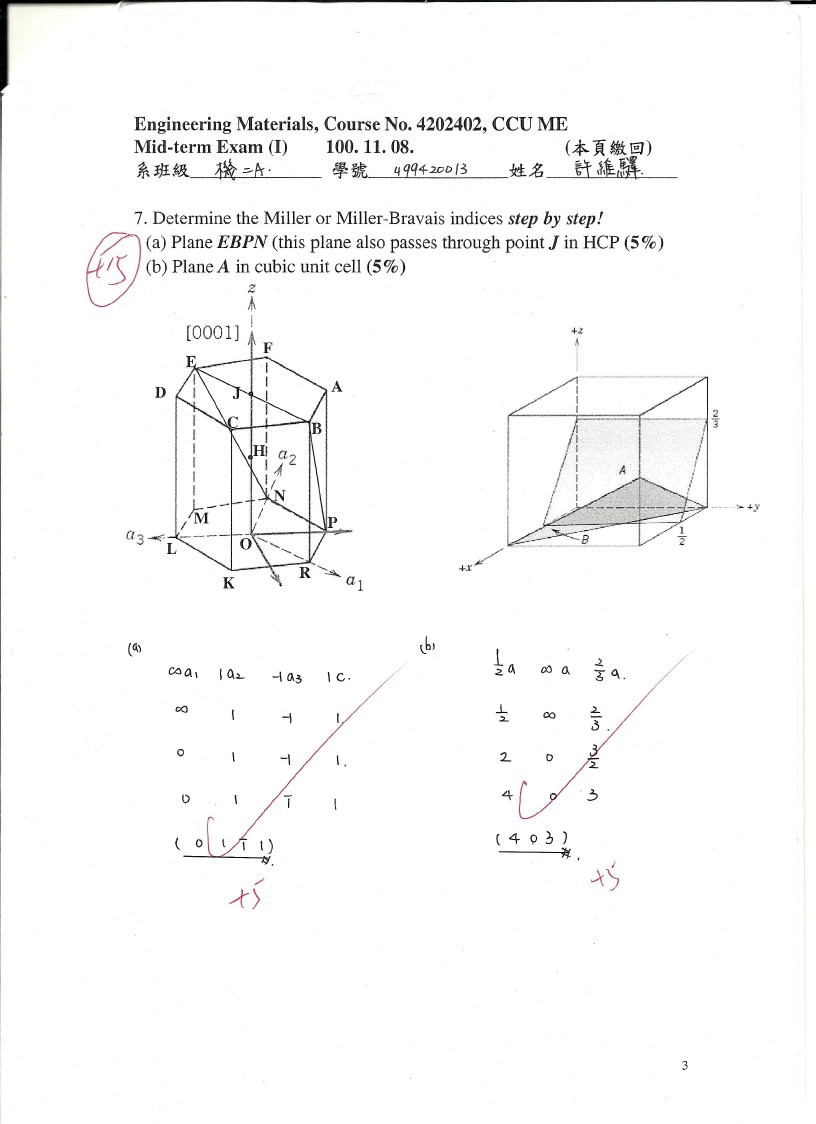 Engineering Materials, Course No. 4202402, CCU ME
Mid-term Exam (I) 100. 11. 08. (本頁繳回)
系班級 機二A. 學號 499420013 姓名 許維驛.
7. Determine the Miller or Miller-Bravais indices step by step!
(a) Plane EBPN (this plane also passes through point J in HCP (5%)
(b) Plane A in cubic unit cell (5%)
+15
z
[0001]
F
E
D
J
A
C
B
H
a2
N
M
P
a3
L
O
R
K
a1
+z
2/3
A
+y
B
1/2
+x
(a)
∞a1 1a2 -1a3 1c.
∞ 1 -1 1.
0 1 -1 1.
0 1 1̅ 1
(0 1 1̅ 1)
+5
(b)
1/2 a ∞ a 2/3 a.
1/2 ∞ 2/3.
2 0 3/2
4 0 3
(4 0 3)
+5
3